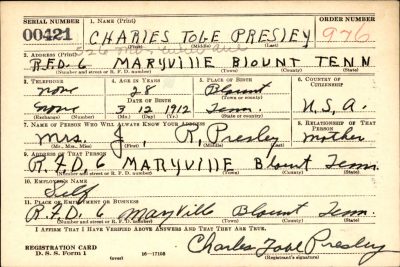 SERIAL NUMBER 1. NAME (Print) ORDER NUMBER
00421 CHARLES TOLE PRESLEY 976
(First) (Middle) (Last)
526
2. ADDRESS (Print)
R.F.D. 6 MARYVILLE BLOUNT TENN
(Number and street or R. F. D. number) (Town) (County) (State)
3. TELEPHONE 4. AGE IN YEARS 5. PLACE OF BIRTH 6. COUNTRY OF CITIZENSHIP
none 28 Blount
DATE OF BIRTH (Town or county)
none 3 12 1912 Tenn. U.S.A.
(Exchange) (Number) (Mo.) (Day) (Yr.) (State or country)
7. NAME OF PERSON WHO WILL ALWAYS KNOW YOUR ADDRESS 8. RELATIONSHIP OF THAT PERSON
Mrs. J. R. Presley Mother
(Mr., Mrs., Miss) (First) (Middle) (Last)
9. ADDRESS OF THAT PERSON
R.F.D 6 MARYVIllE Blount Tenn.
(Number and street or R. F. D. number) (Town) (County) (State)
10. EMPLOYER'S NAME
Self
11. PLACE OF EMPLOYMENT OR BUSINESS
R.F.D. 6 Maryville Blount Tenn.
(Number and street or R. F. D. number) (Town) (County) (State)
I AFFIRM THAT I HAVE VERIFIED ABOVE ANSWERS AND THAT THEY ARE TRUE.
REGISTRATION CARD
D. S. S. Form 1 (over) 16—17105 Charles Presley
(Registrant's signature)